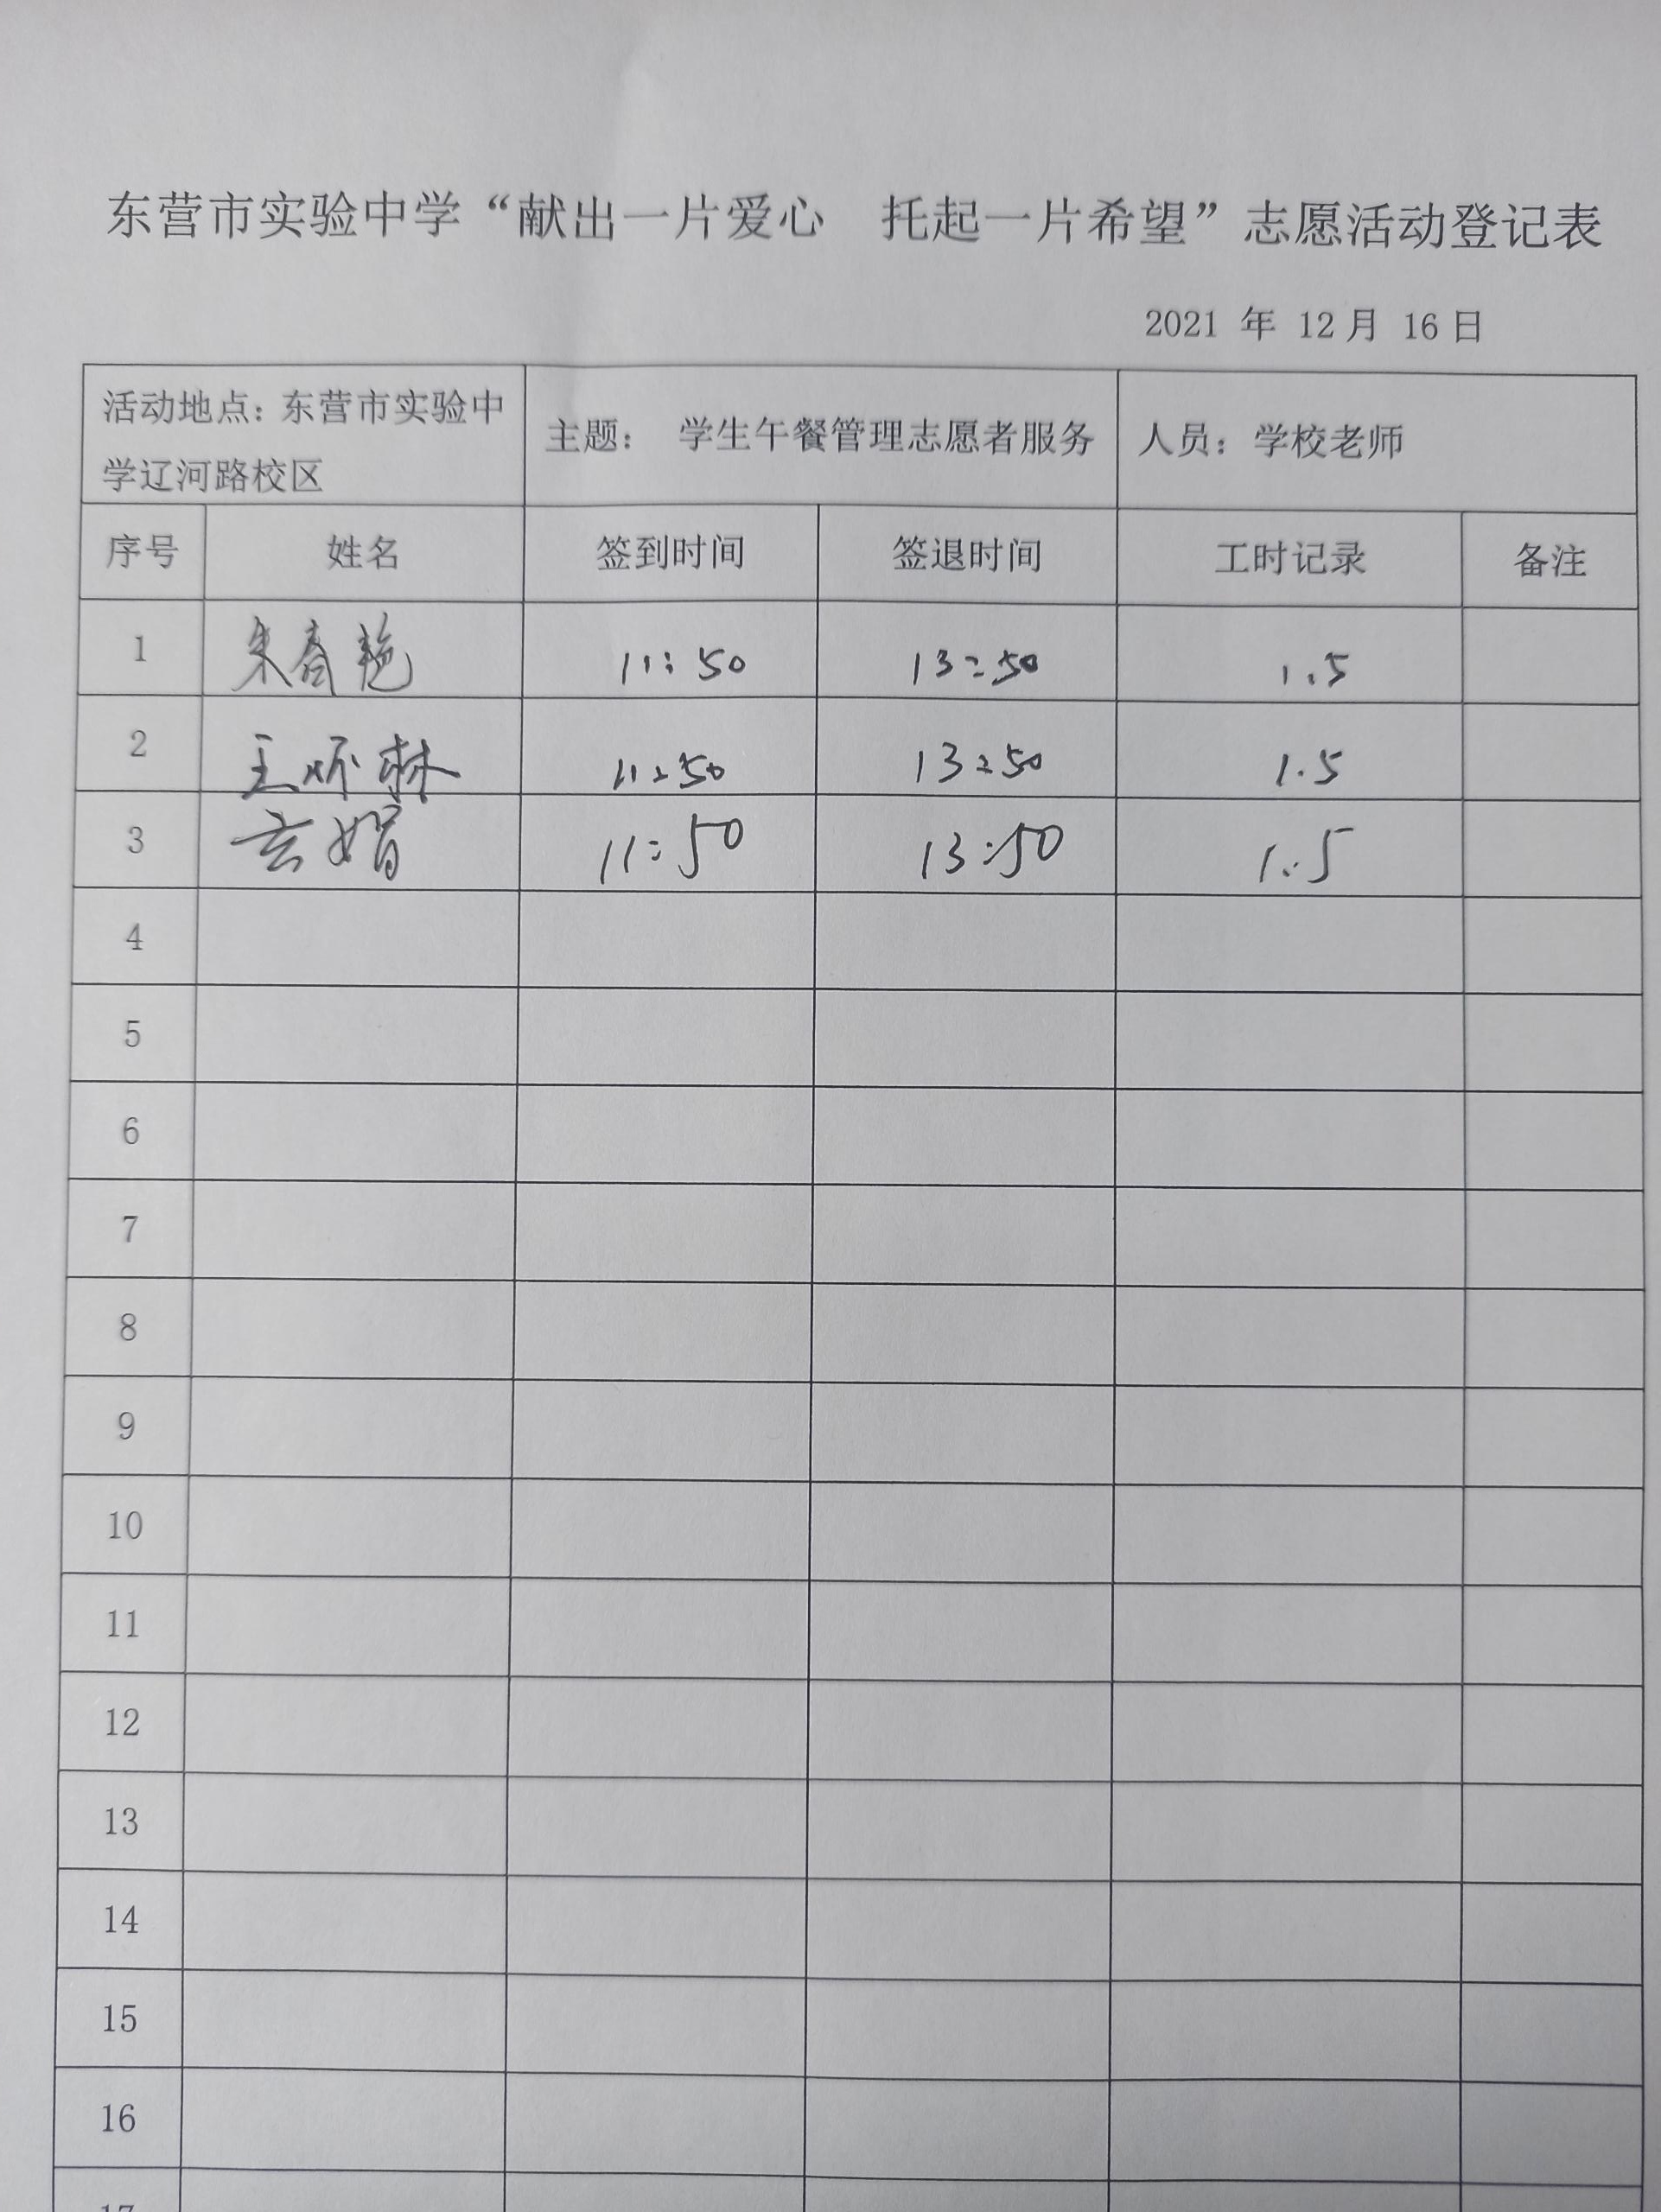 东营市实验中学“献出一片爱心　托起一片希望”志愿活动登记表
2021 年 12月 16日
活动地点：东营市实验中学辽河路校区 主题： 学生午餐管理志愿者服务 人员：学校老师
序号 姓名 签到时间 签退时间 工时记录 备注
1 朱春艳 11:50 13:50 1.5
2 王怀林 11:50 13:50 1.5
3 11:50 13:50 1.5
4
5
6
7
8
9
10
11
12
13
14
15
16
17